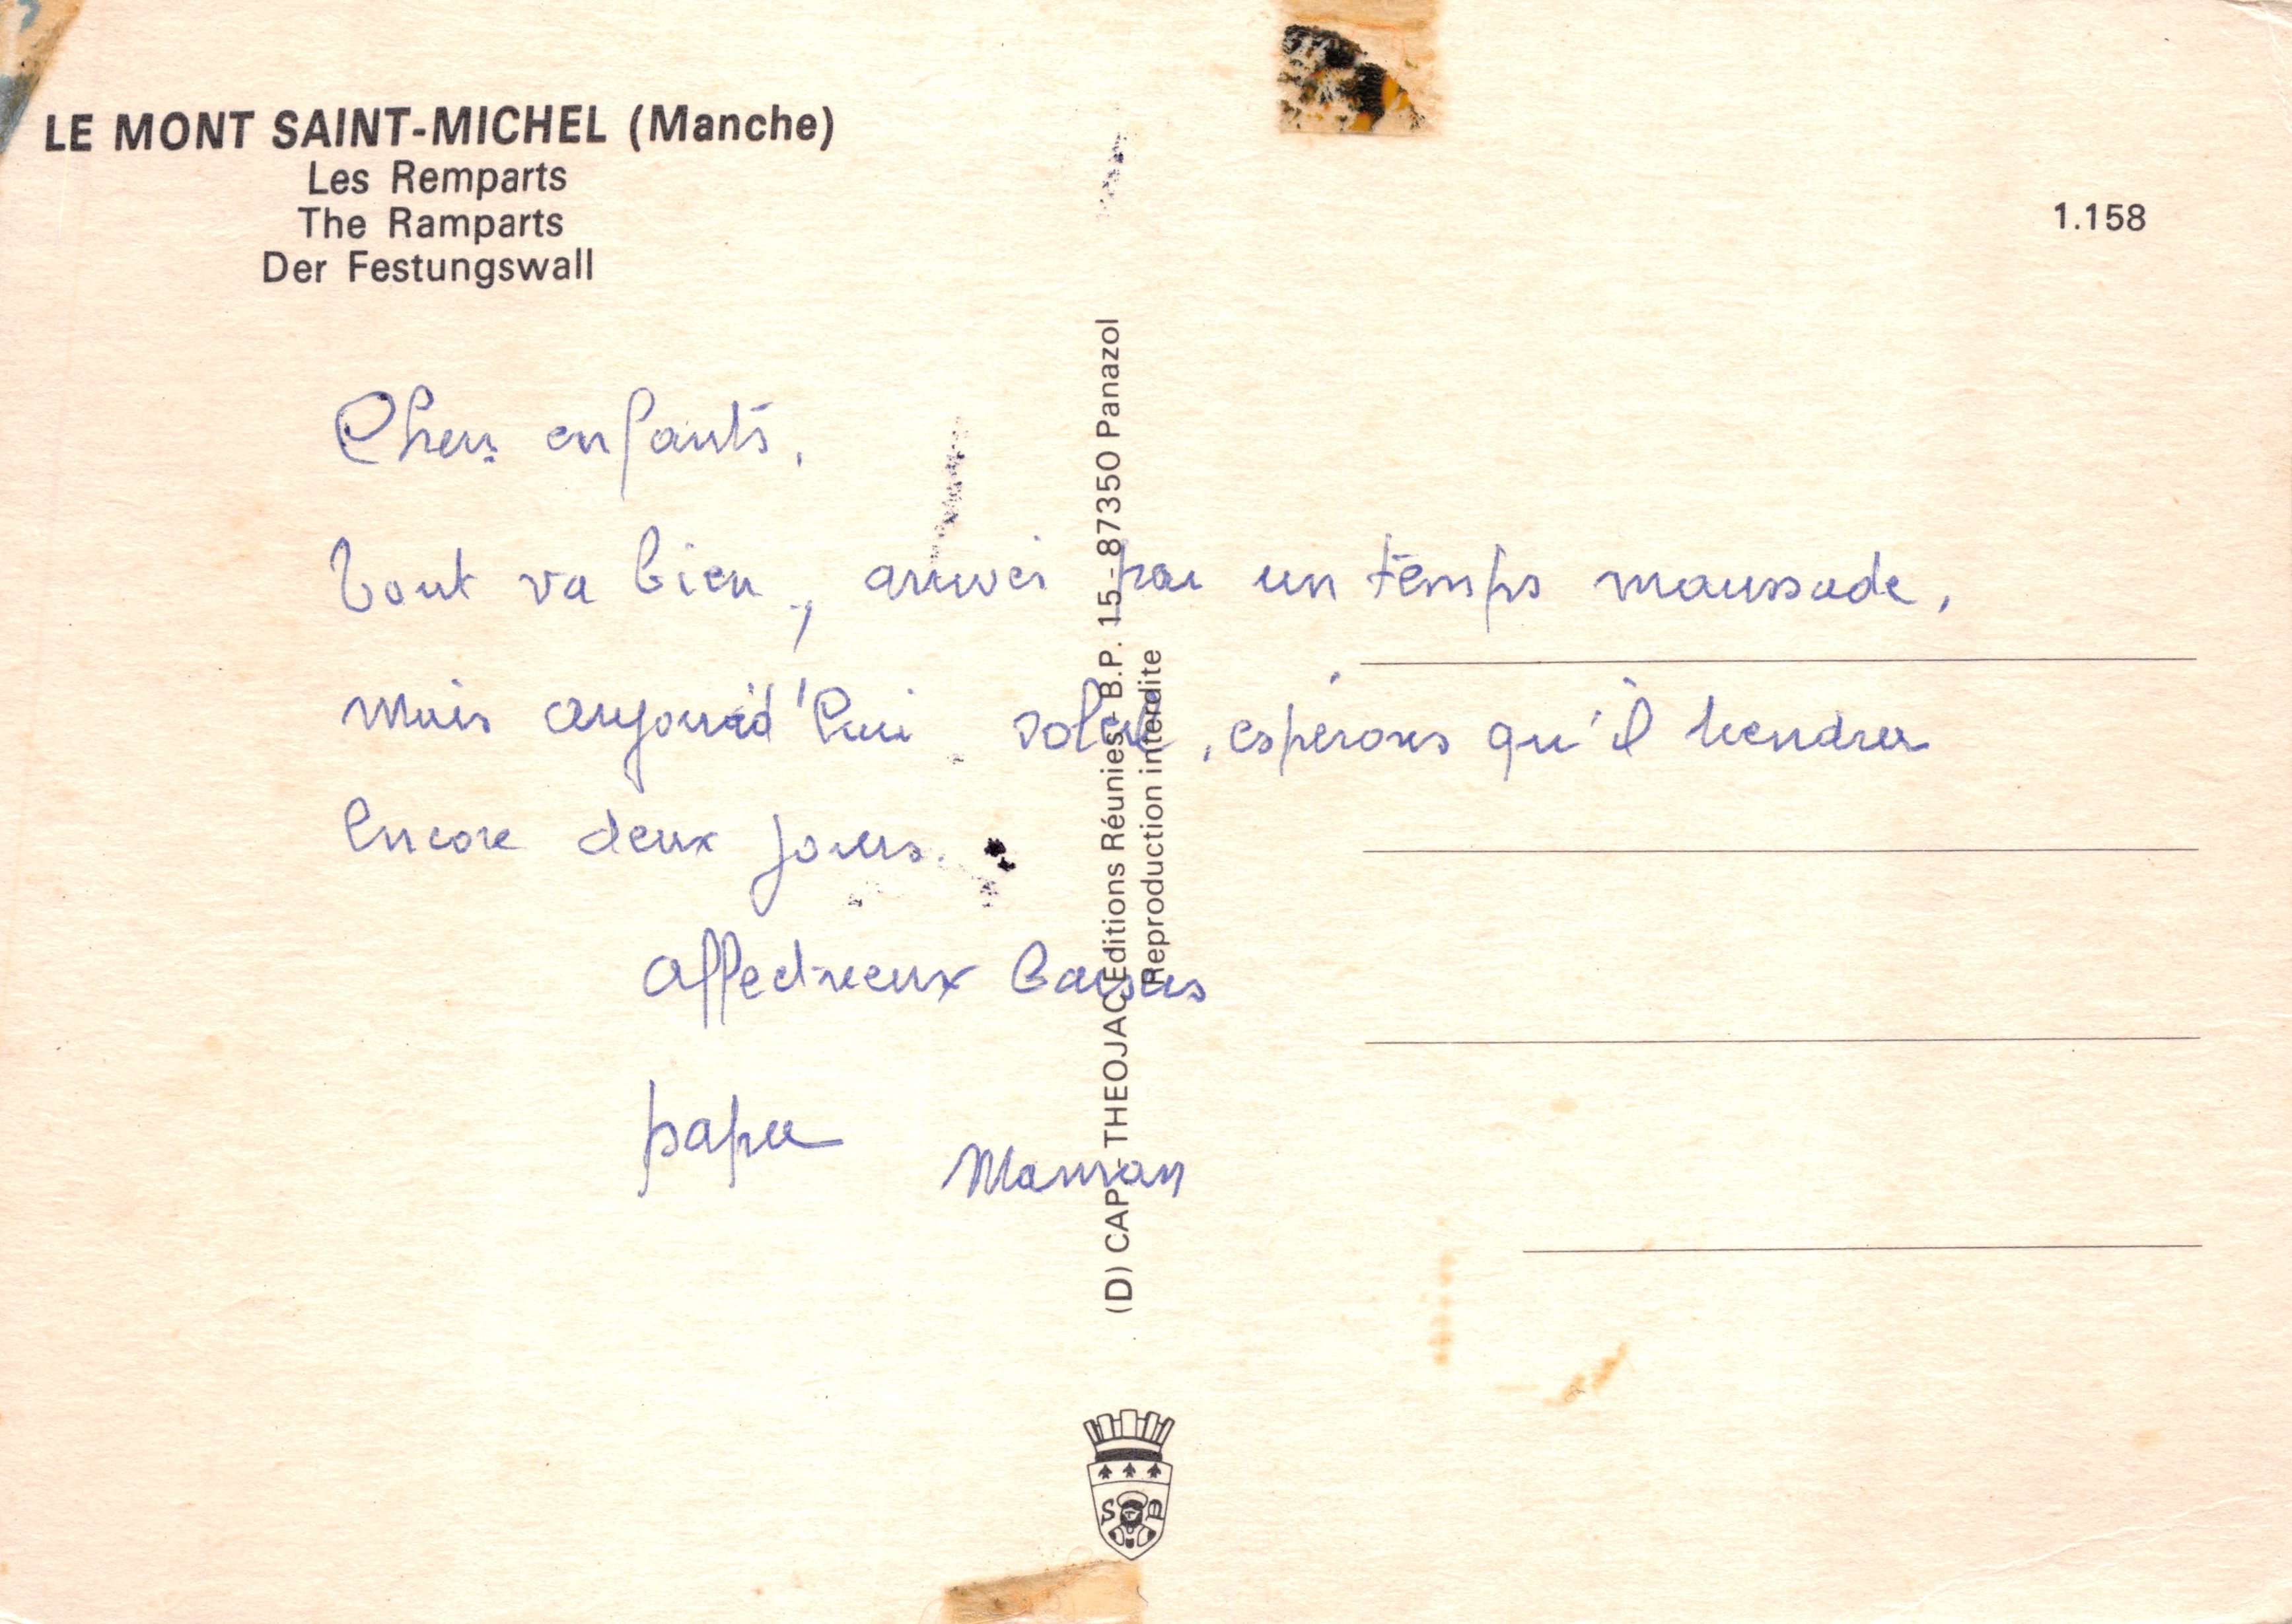 LE MONT SAINT-MICHEL (Manche)
Les Remparts
The Ramparts
Der Festungswall
1.158
Chers enfants,
Tout va bien, arrivés par un temps maussade,
mais aujourd'hui soleil, espérons qu'il tiendra
encore deux jours.
Affectueux baisers
papa
Maman
(D) CAP - THEOJAC Editions Réunies - B.P. 15 - 87350 Panazol
Reproduction interdite